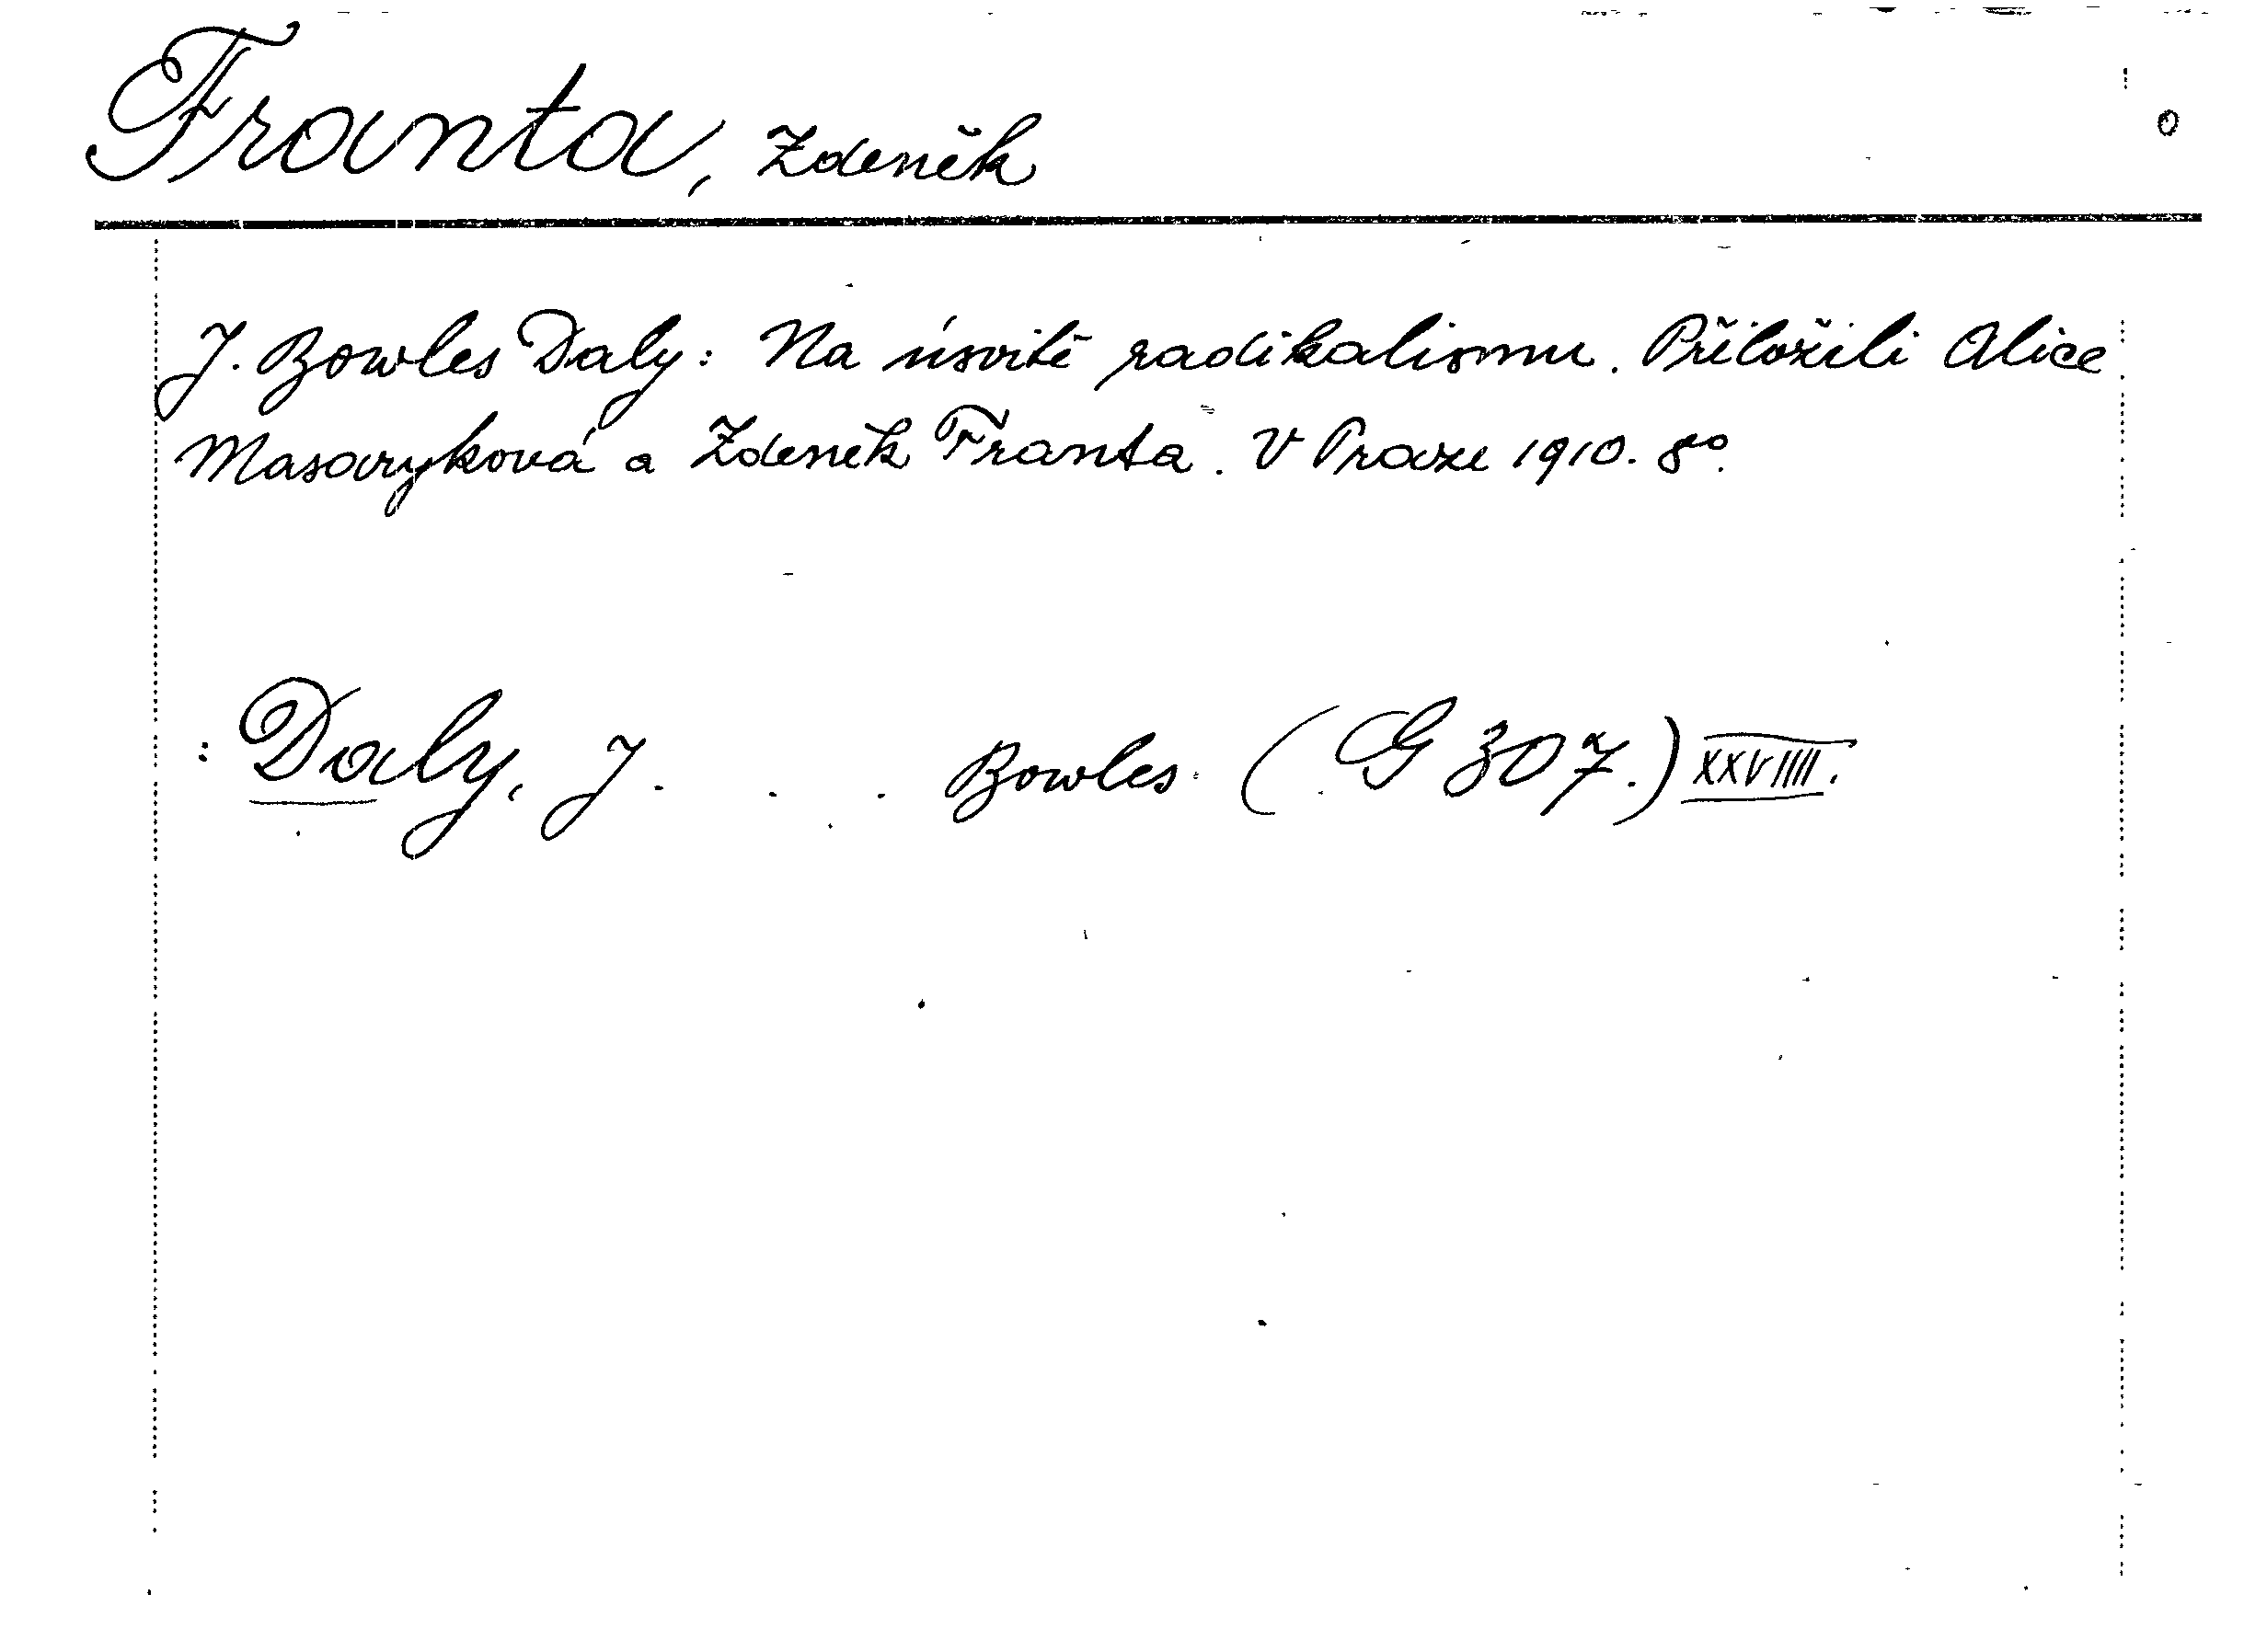 Franta, Zdeněk
J. Bowles Daly: Na úsvitě radikalismu. Přiložili Alice
Masaryková a Zdeněk Franta. V Praze 1910. 8º.
: Daly, J. . . Bowles. (G 307.) XXVIIII.